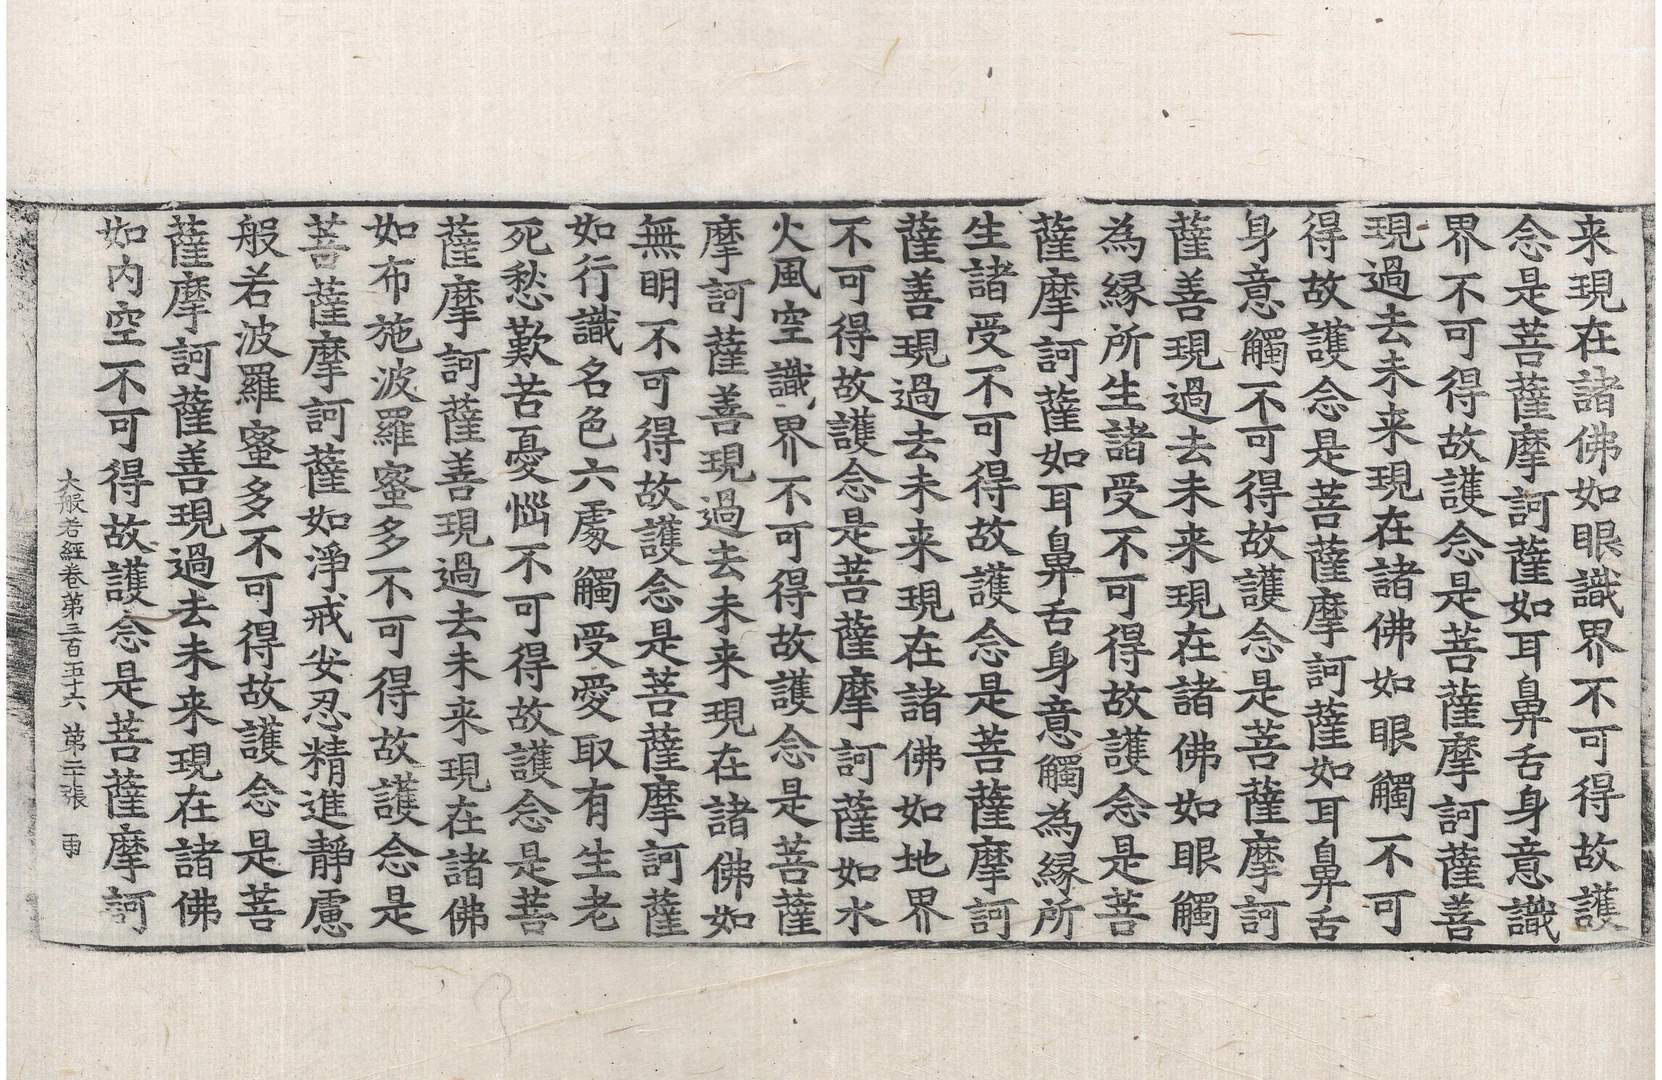 来現在諸佛如眼識界不可得故護
念是菩薩摩訶薩如耳鼻舌身意識
界不可得故護念是菩薩摩訶薩善
現過去未来現在諸佛如眼觸不可
得故護念是菩薩摩訶薩如耳鼻舌
身意觸不可得故護念是菩薩摩訶
薩善現過去未来現在諸佛如眼觸
為縁所生諸受不可得故護念是菩
薩摩訶薩如耳鼻舌身意觸為縁所
生諸受不可得故護念是菩薩摩訶
薩善現過去未来現在諸佛如地界
不可得故護念是菩薩摩訶薩如水
火風空識界不可得故護念是菩薩
摩訶薩善現過去未来現在諸佛如
無明不可得故護念是菩薩摩訶薩
如行識名色六處觸受愛取有生老
死愁歎苦憂惱不可得故護念是菩
薩摩訶薩善現過去未来現在諸佛
如布施波羅蜜多不可得故護念是
菩薩摩訶薩如淨戒安忍精進靜慮
般若波羅蜜多不可得故護念是菩
薩摩訶薩善現過去未来現在諸佛
如内空不可得故護念是菩薩摩訶
大般若經卷第三百五十六 第二十張 雨